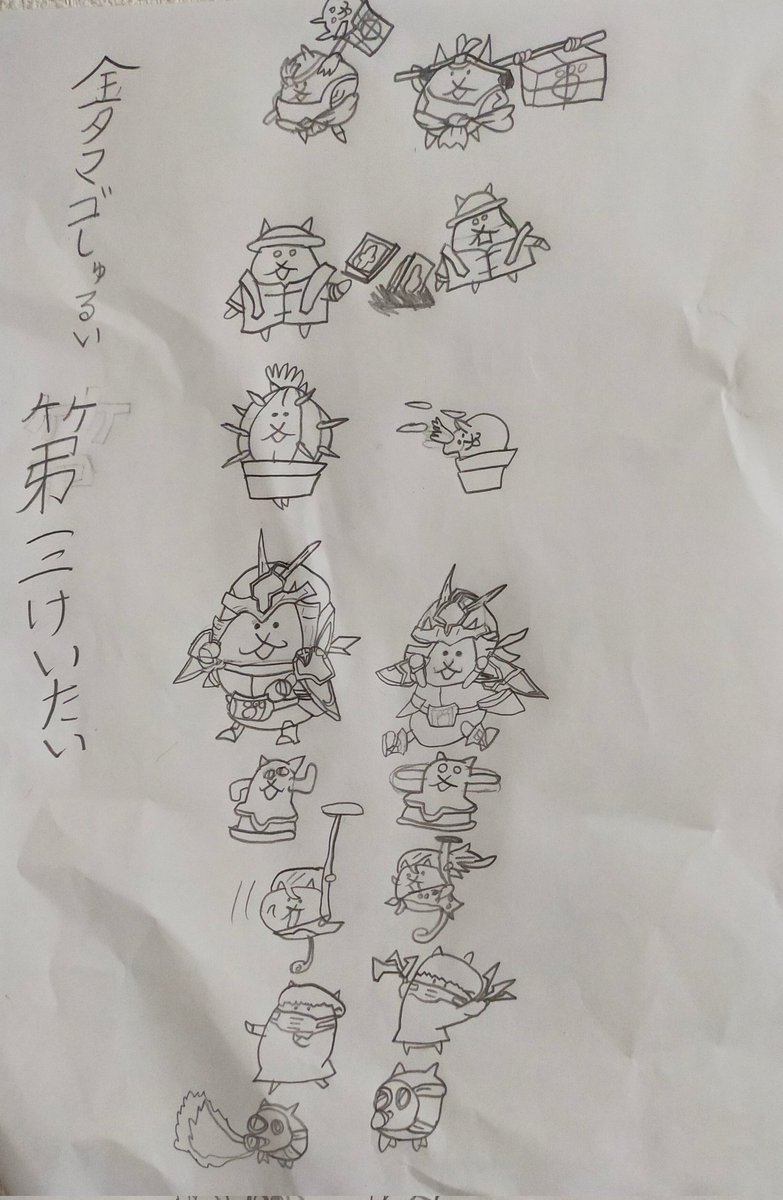 金タマゴしゅるい
第三けいたい